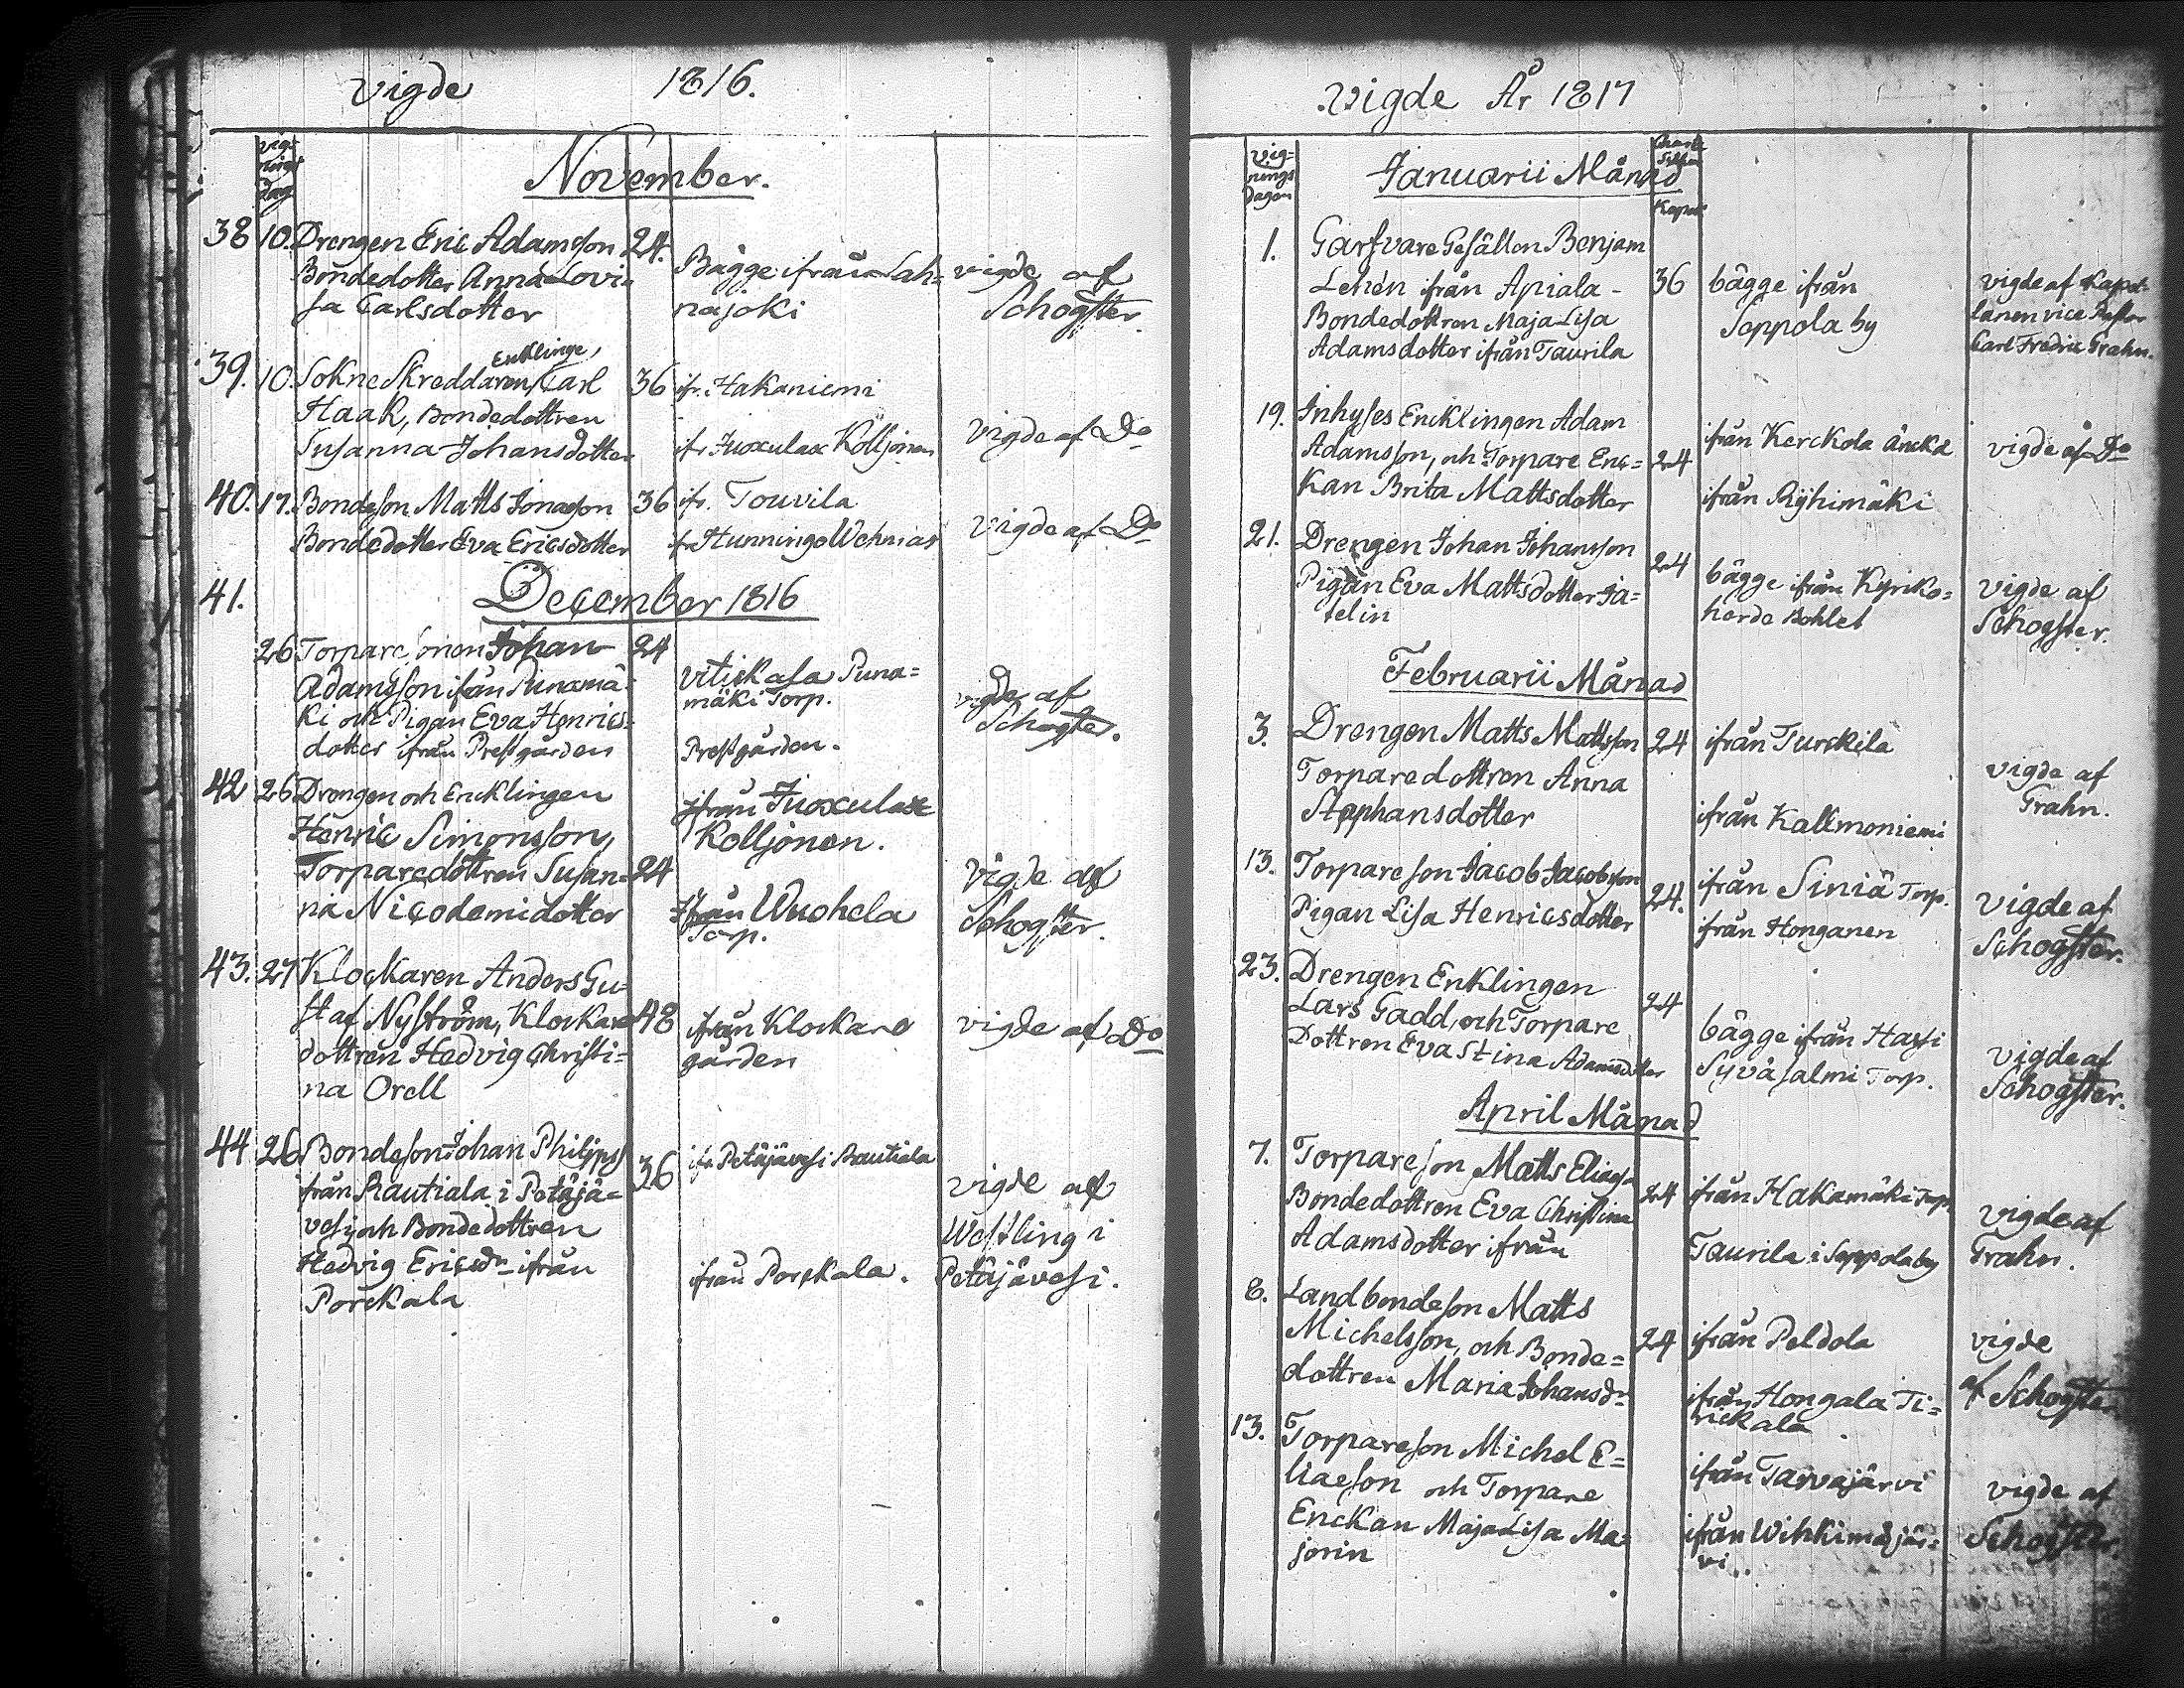 Vigde 1816.
Vig-
nings
Dag
November.
38 10. Drengen Eric Adamsson 24.
Bondedotter Anna Lovi-
sa Carlsdotter
Bägge ifrån Lah-
najoki
vigde af
Schogster
Encklinge,
39. 10. Sokne Skreddaren, Carl 36 ifr. Hakaniemi
Haak, Bondedottren
Susanna Johansdotter ifr. Juoxulax Kolljonen
Vigde af Do
40. 17. Bondeson Matts Jonasson 36 ifr. Touvila
Bondedotter Eva Ericsdotter fr Hunninge Wehnias
Vigde af Do
41. December 1816
26 Torparesonen Johan 24
Adamsson ifrån Punamä-
ki och Pigan Eva Henrics-
dotter ifrån Prestgården
Puna=
mäki Torp.
Prestgården.
vigde af
Schogster.
42 26 Drengen och Encklingen
Henric Simonsson,
Torparedottren Susan= 24
na Nicodemidotter
ifrån Juoxulax
Kolljonen.
Ifrån Wuohela
Torp.
Vigde af
Schogster.
43. 27 Klockaren Anders Gu-
staf Nyström, Klockare 48
dottren Hedvig Christi=
na Orell
ifrån Klockare
gården
vigde af Do
44 26 Bondeson Johan Philipss 36
från Rautiala i Petäjä=
vesi och Bondedottren
Hedvig Ericsdr ifrån
Porckala
ifr. Petäjävesi Rautiala
ifrån Porckala.
vigde af
Westling i
Petäjävesi.
Vigde År 1817
Vig=
nings
Dagen
Januarii Månad
Kapit
1. Garfvare Gesällen Benjam
Lehén ifrån Apiala - 36
Bondedottren Maja Lisa
Adamsdotter ifrån Taurila
bägge ifrån
Seppola by
vigde af Kapel-
lanen vice Pastor
Carl Fredric Grahn.
19. Inhyses Encklingen Adam
Adamsson, och Torpare Enc= 24
kan Brita Mattsdotter
ifrån Kerckola
ifrån Ryhimäki
vigde af Do
21. Drengen Johan Johansson 24
Pigan Eva Mattsdotter Ja=
telin
bägge ifrån Kyrko=
herde Bohlet
vigde af
Schogster.
Februarii Månad
3. Drengen Matts Mattsson 24 ifrån Turckila
Torparedottren Anna
Stephansdotter
ifrån Kallmoniemi
vigde af
Grahn.
13. Torpareson Jacob Jacobsson 24.
Pigan Lisa Henricsdotter
ifrån Siniä Torp.
ifrån Honganen
Vigde af
Schogster.
23. Drengen Enklingen
Lars Gadd, och Torpare 24
Dottren Eva Stina Adamsdotter
bägge ifrån Harsi
Syväsalmi Torp.
vigde af
Schogster.
April Månad
7. Torpareson Matts Eliass 24
Bondedottren Eva Christina
Adamsdotter ifrån
ifrån Hakamäki Torp.
Taurila i Seppola by
vigde af
Grahn.
8. Landbondeson Matts
Michelsson, och Bonde= 24
dottren Maria Johansdr
ifrån Peldola
ifrån Hongala Ti=
rickala
vigde
af Schogster.
13. Torpareson Michel E=
liaeson och Torpare
Enckan Maja Lisa Ma=
jorin
ifrån Tarvajärvi
ifrån Wihkimäjär=
vi.
vigde af
Schogster.